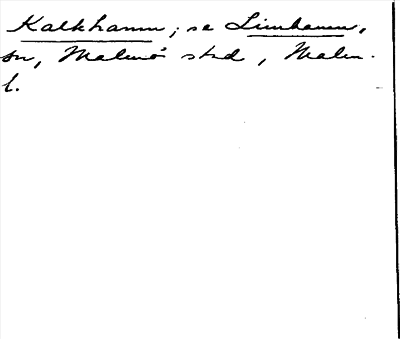 Kalkhamn; se Limhamn,
sn, Malmö stad, Malm.
l.